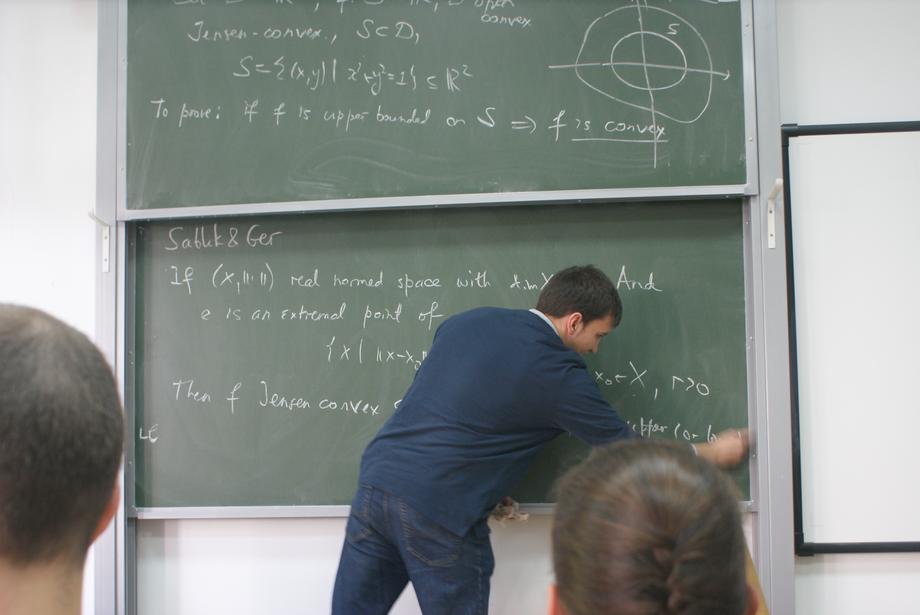 convex
Jensen-convex, S⊂D,
S={(x,y) | x²+y²=1} ⊆ ℝ²
S
To prove: if f is upper bounded on S ⇒ f is convex
Sablik & Ger
If (X,||·||) real normed space with And
e is an extremal point of
{x | ||x-x₀ x₀∈X, r>0
Then f Jensen convex
upper (or